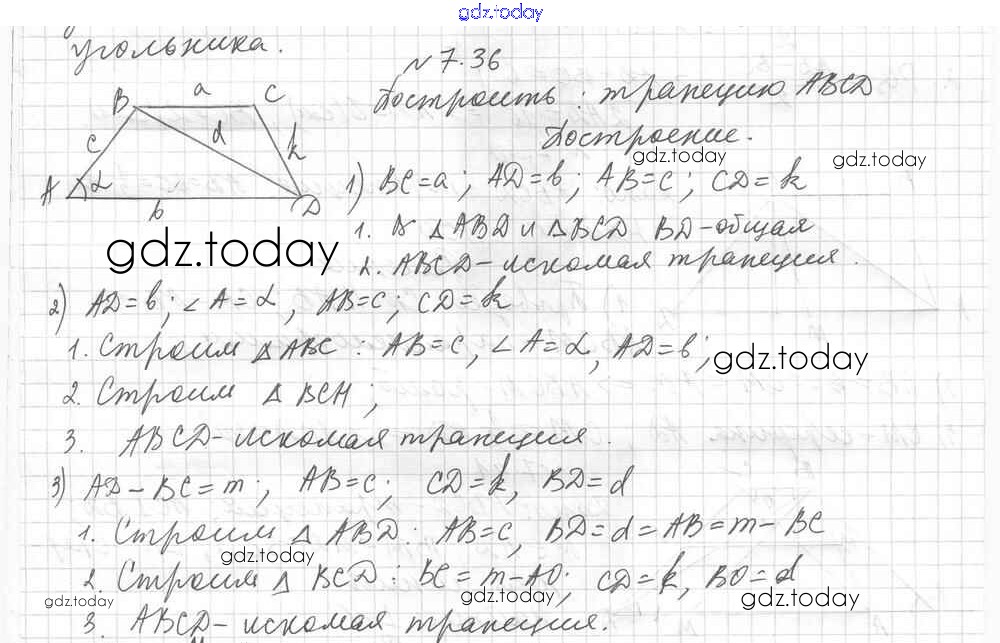 gdz.today
угольника.
№ 7.36
Построить: трапецию ABCD
Построение.
gdz.today
gdz.today
a
B
C
c
d
k
A
α
b
D
1) BC=a; AD=b; AB=c; CD=k
1. △ABD и △BCD BD-общая
2. ABCD-искомая трапеция.
gdz.today
2) AD=b; ∠A=α, AB=c; CD=k
1. Строим △ABC: AB=c, ∠A=α, AD=b;
gdz.today
2. Строим △BCH;
3. ABCD-искомая трапеция.
3) AD-BC=m; AB=c; CD=k, BD=d
1. Строим △ABD: AB=c, BD=d=AB=m-BC
gdz.today
2. Строим △BCD: BC=m-AD; CD=k, BD=d
gdz.today
gdz.today
gdz.today
3. ABCD-искомая трапеция.